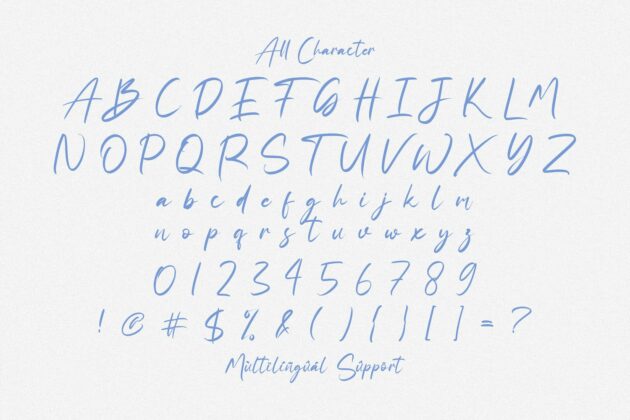 All Character
A B C D E F G H I J K L M
N O P Q R S T U V W X Y Z
a b c d e f g h i j k l m
n o p q r s t u v w x y z
0 1 2 3 4 5 6 7 8 9
! @ # $ % & ( ) { } [ ] = ?
Mùltilíngûál Sûppört